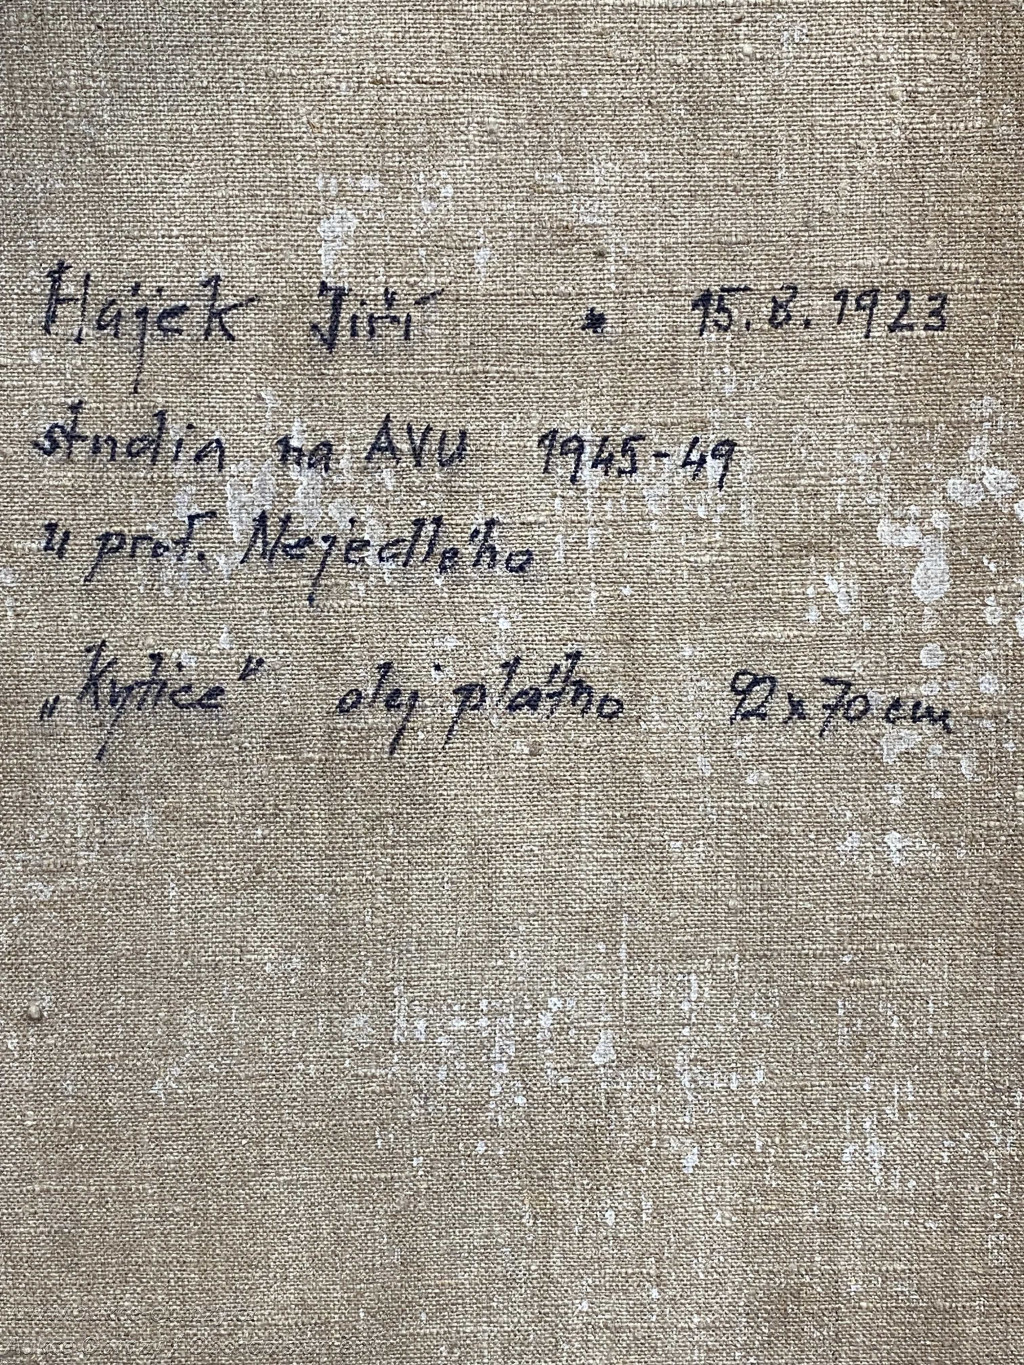 Hájek Jiří * 15.8.1923
studia na AVU 1945-49
u prof. Nejedlého
„Kytice" olej plátno 92x70 cm